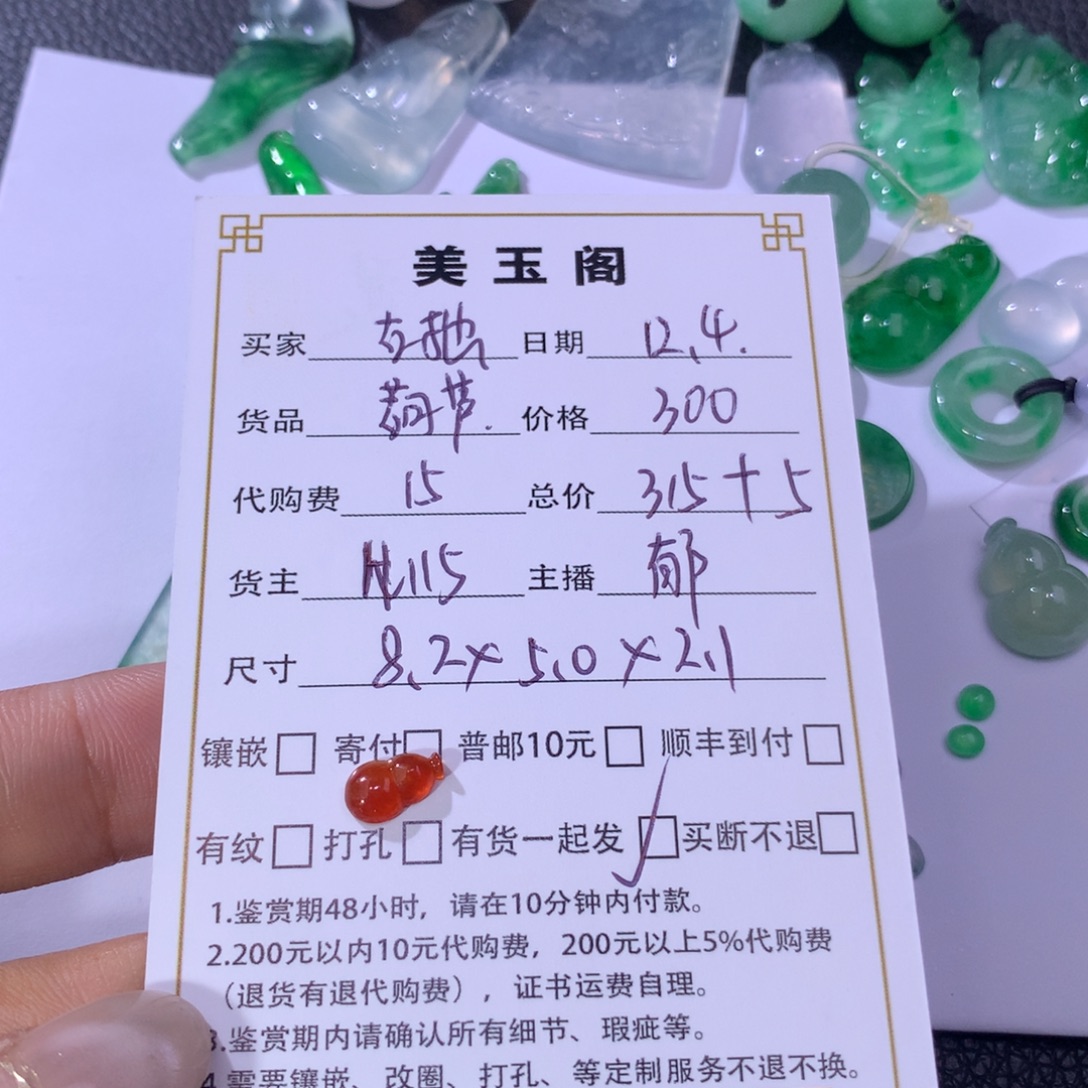 美玉阁
买家 日期 12.4.
货品 葫芦. 价格 300
代购费 15 总价 315+5
货主 H115 主播 郁
尺寸 8.2×5.0×2.1
镶嵌□ 寄付□ 普邮10元□ 顺丰到付□
有纹□ 打孔□ 有货一起发□✓ 买断不退□
1.鉴赏期48小时，请在10分钟内付款。
2.200元以内10元代购费，200元以上5%代购费
（退货有退代购费），证书运费自理。
3.鉴赏期内请确认所有细节、瑕疵等。
4.需要镶嵌、改圈、打孔、等定制服务不退不换。